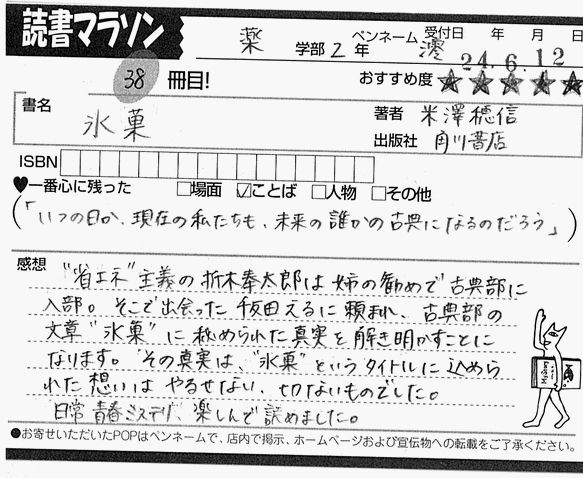 読書マラソン
薬 学部 2 年 ペンネーム 澪 受付日 年 月 日
24.6.12
38 冊目!
おすすめ度 ★★★★★
書名 氷菓
著者 米澤穂信
出版社 角川書店
ISBN
♥一番心に残った □場面 ☑ことば □人物 □その他
(「いつの日か、現在の私たちも、未来の誰かの古典になるのだろう」)
感想
"省エネ"主義の折木奉太郎は姉の勧めで古典部に
入部。そこで出会った千反田えるに頼まれ、古典部の
文章"氷菓"に秘められた真実を解き明かすことに
なります。その真実は、"氷菓"というタイトルに込めら
れた想いはやるせない、切ないものでした。
日常青春ミステリ、楽しんで読めました。
●お寄せいただいたPOPはペンネームで、店内で掲示、ホームページおよび宣伝物への転載をご了承ください。